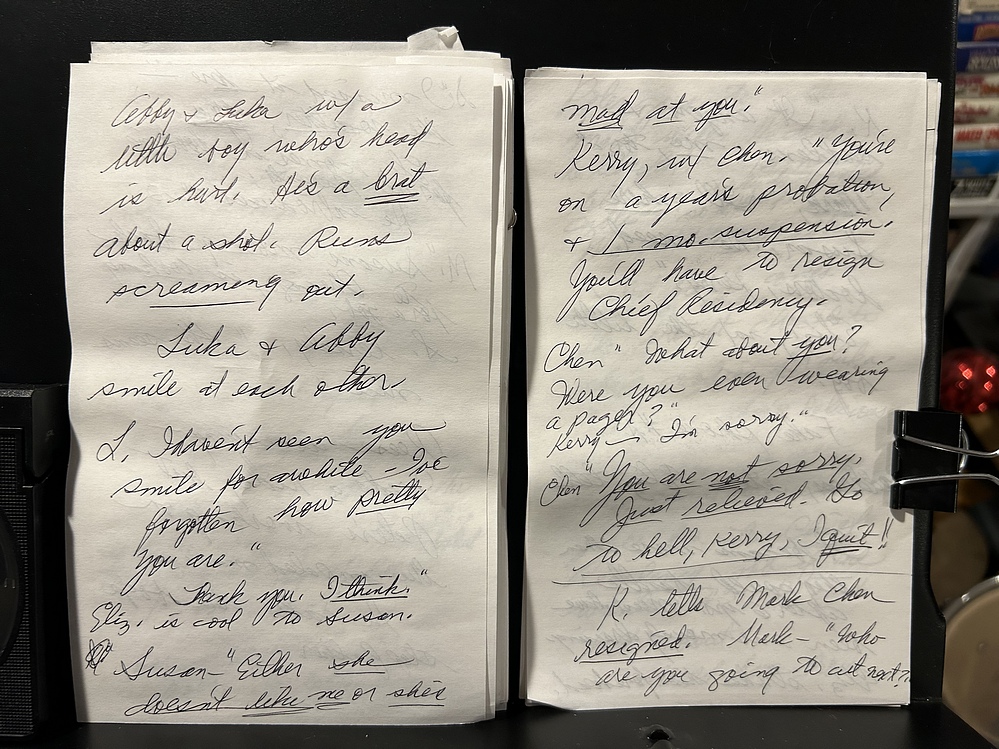 Abby & Luka w/ a
little boy who's head
is hurt. He's a brat
about a shot. Runs
screaming out.
Luka & Abby
smile at each other.
L. I haven't seen you
smile for awhile - I've
forgotten how pretty
you are."
Thank you. I think."
Eliz. is cool to Susan.
Susan - "Either she
doesn't like me or she's
mad at you."
Kerry, w/ Chen. "You're
on a year's probation,
& 1 mo. suspension.
You'll have to resign
Chief Residency.
Chen "What about you?
Were you even wearing
a pager?"
Kerry - I'm sorry."
Chen "You are not sorry.
Just relieved. Go
to hell, Kerry, I quit!!
K. tells Mark Chen
resigned. Mark - "Who
are you going to cut next?